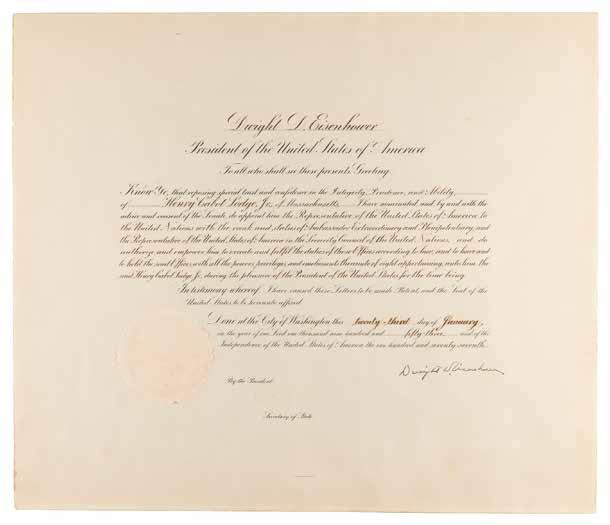 Dwight D. Eisenhower
President of the United States of America
To all who shall see these presents, Greeting:
Know Ye, that reposing special trust and confidence in the Integrity, Prudence, and Ability
of Henry Cabot Lodge, Jr., of Massachusetts, I have nominated, and by and with the
advice and consent of the Senate, do appoint him the Representative of the United States of America to
the United Nations with the rank and status of Ambassador Extraordinary and Plenipotentiary, and
the Representative of the United States of America in the Security Council of the United Nations, and do
authorize and empower him to execute and fulfil the duties of these Offices according to law, and to have and
to hold the said Offices, with all the powers, privileges, and emoluments thereunto of right appertaining, unto him the
said Henry Cabot Lodge, Jr., during the pleasure of the President of the United States for the time being.
In testimony whereof, I have caused these Letters to be made Patent, and the Seal of the
United States to be hereunto affixed.
Done at the City of Washington this twenty-third day of January,
in the year of our Lord one thousand nine hundred and fifty-three and of the
Independence of the United States of America the one hundred and seventy-seventh.
Dwight D. Eisenhower
By the President:
Secretary of State.